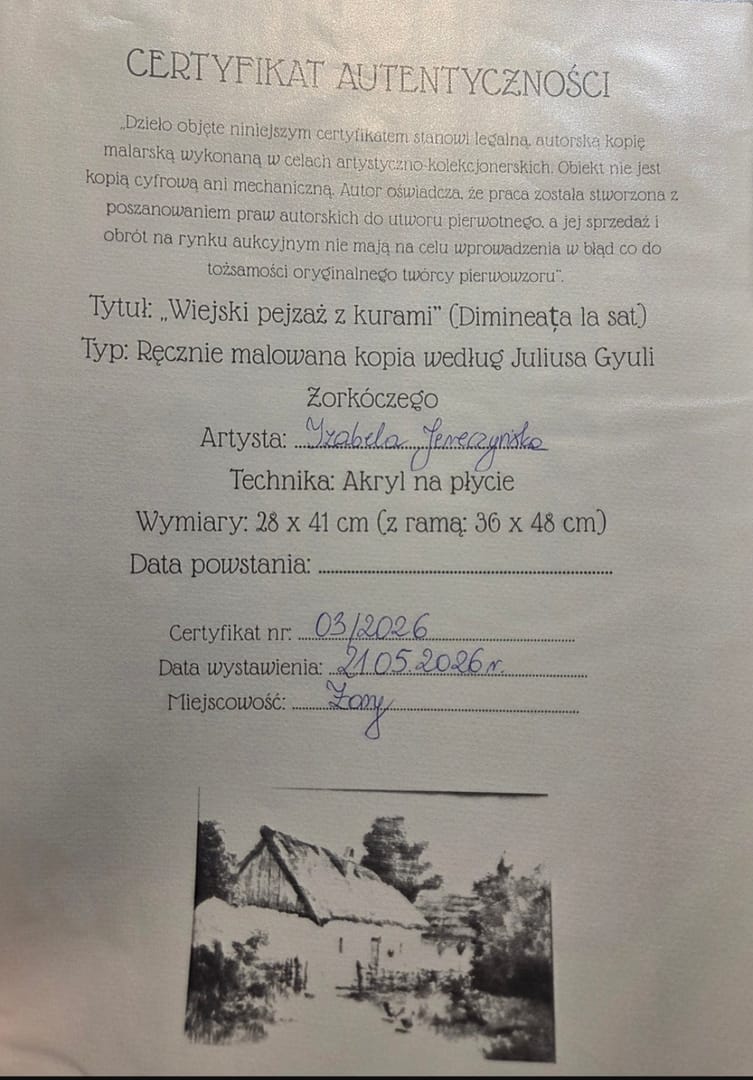 CERTYFIKAT AUTENTYCZNOŚCI
„Dzieło objęte niniejszym certyfikatem stanowi legalną, autorską kopię
malarską wykonaną w celach artystyczno-kolekcjonerskich. Obiekt nie jest
kopią cyfrową ani mechaniczną. Autor oświadcza, że praca została stworzona z
poszanowaniem praw autorskich do utworu pierwotnego, a jej sprzedaż i
obrót na rynku aukcyjnym nie mają na celu wprowadzenia w błąd co do
tożsamości oryginalnego twórcy pierwowzoru”.
Tytuł: „Wiejski pejzaż z kurami” (Dimineața la sat)
Typ: Ręcznie malowana kopia według Juliusa Gyuli
Żorkóczego
Artysta: Izabela
Technika: Akryl na płycie
Wymiary: 28 x 41 cm (z ramą: 36 x 48 cm)
Data powstania:
Certyfikat nr: 03/2026
Data wystawienia: 21.05.2026 r.
Miejscowość: Żory